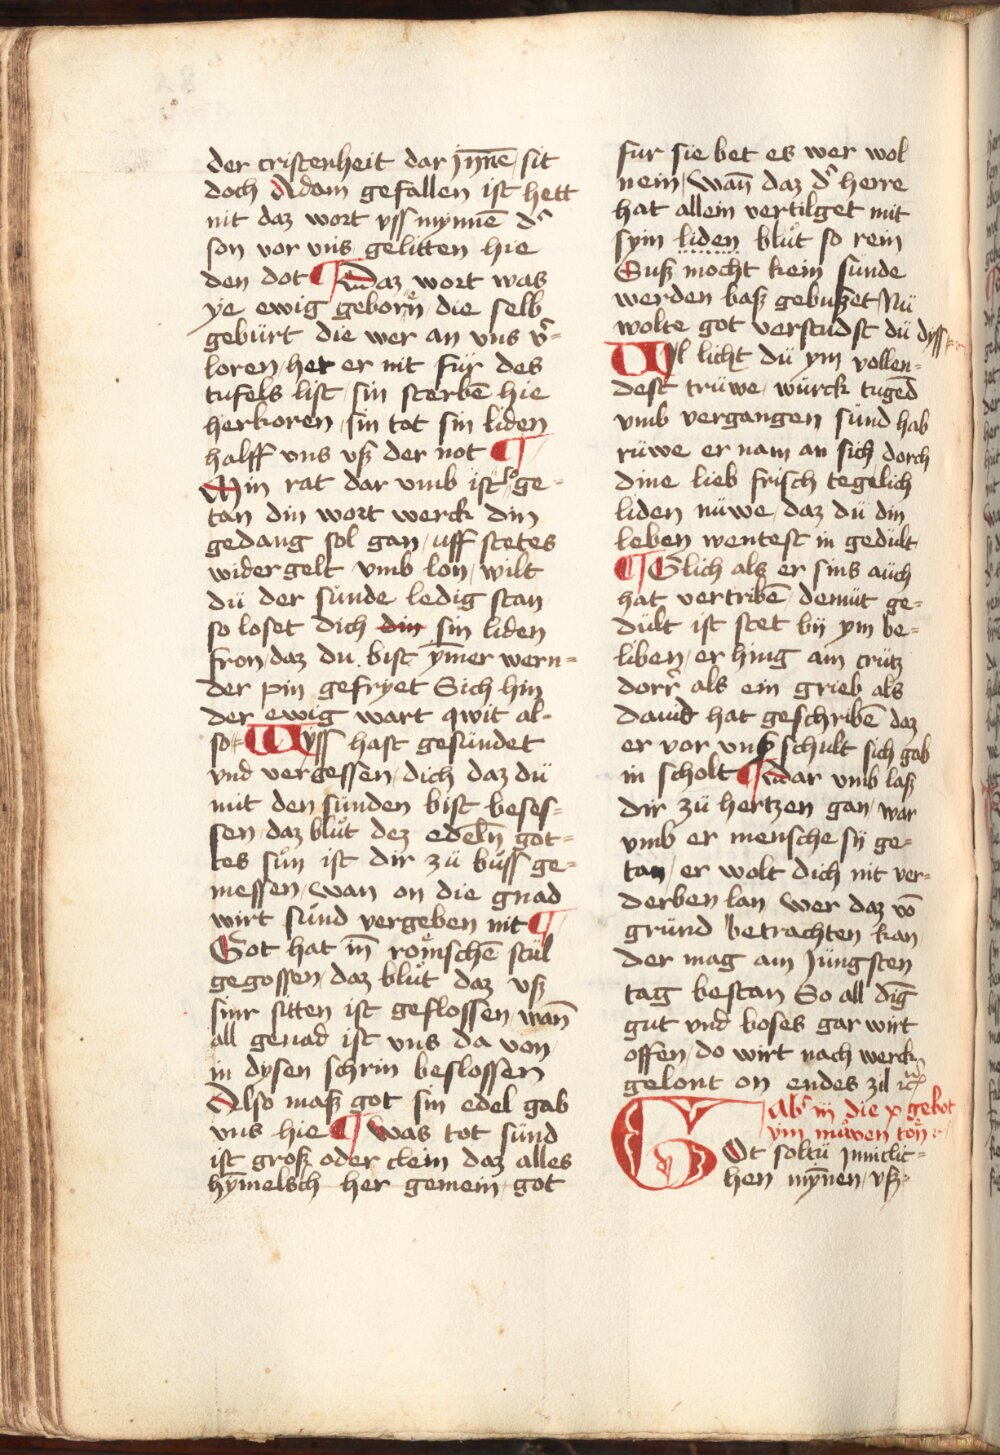 der cristenheit dar jnnē / sit
doch Adam gefallen ist hett
nit daz wort yss mynnē d᷑
son vor vns gelitten hie
den dot ¶ Daz wort was
ye ewig geborn̄ die selb
gebürt die wer an vns v᷑=
loren / het er nit für des
tufels list / sin sterbē hie
herkoren / sin tot sin liden
halff vns vß der not ¶
Min rat dar vmb ist so ge=
tan din wort werck din
gedang sol gan / uff stetes
widergelt vmb lon / wilt
dü der sünde ledig stan
so loset dich din sin liden
fron / daz du bist ȳmer wern=
der pin gefryet Sich hin
der ewig wart qwit al=
so Wyss hast gesündet
vnd vergessen / dich daz dü
mit den sünden bist beses=
sen / daz blüt dez edeln̄ got=
tes sün ist dir zü büss ge=
messen / wan on die gnad
wirt sünd vergeben nit ¶
Got hat in̄ römschē stül
gegossen / daz blüt daz vß
sinr sitten ist geflossen / wan̄
all genad ist vns da von
in dysen schrin beslossen
Also maß got sin edel gab
vns hie ¶ Was tot sünd
ist groß oder clein daz alles
hȳmelsch her gemein / got
fur sie bet es wer wol
nein / Wan̄ daz d᷑ herre
hat allein vertilget mit
syin liden blüt so rein
Suß mocht kein sünde
werden baß gebußet / Nü
wolte got verstudst dü dyss
Wil licht dü ym vollen=
dest trüwe / würck tugēd
vmb vergangen sünd hab
rüwe er nam an sich dorch
dine lieb frisch tegelich
liden nüwe / daz dü din
leben wentest in gedült
¶ Glich als er sins auch
hat vertribē / demüt ge=
dült ist stet bij ym be=
liben / er hing am crütz
dorr̄ als ein grieb als
dauid hat geschribē daz
er vor vnß schult sich gab
in scholt ¶ Dar vmb laß
dir zü hertzen gan / war
vmb er mensche sij ge=
tan / er wolt dich nit ver=
derben lan wer daz vō
gründ betrachten kan
der mag am jüngsten
tag bestan So all dīg
gut vnd boses gar wirt
offen / do wirt nach werck
gelont on endes zil
Ab᷑ iij die x gebot
ym nuwen ton
Got soltü inniclic=
hen mȳnen / vß